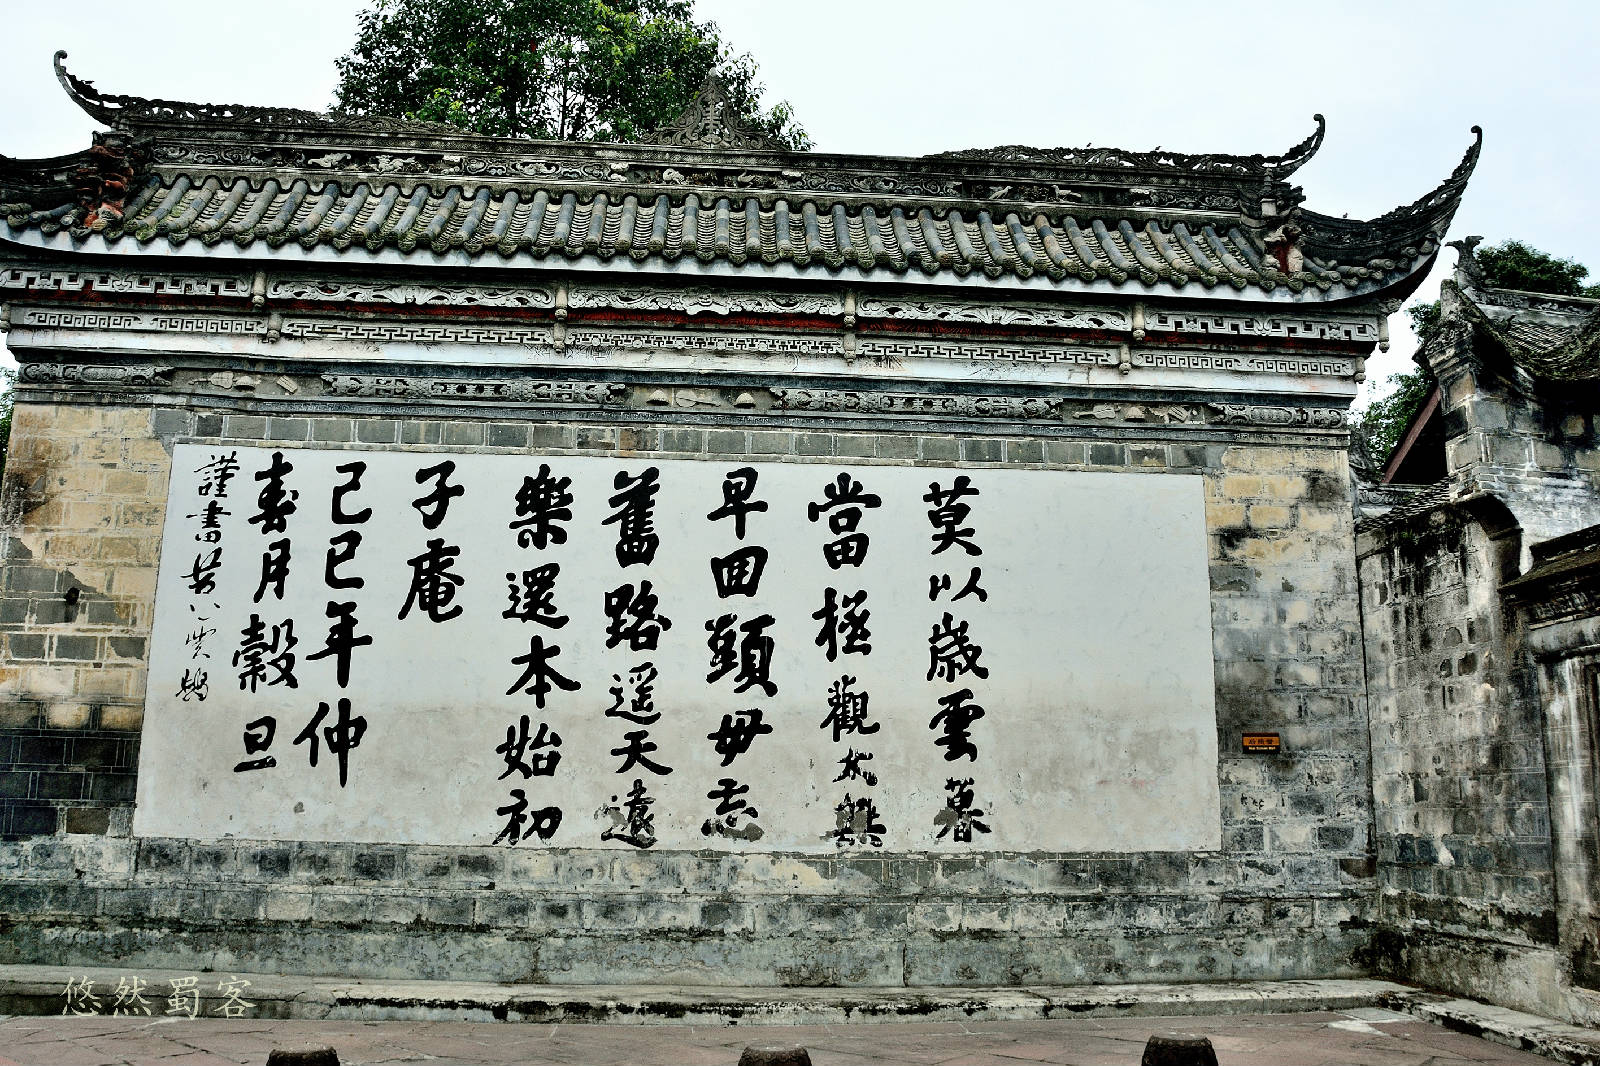 莫以歲雲暮
當極觀太無
早回頭毋忘
舊路遥天遠
樂還本始初
子庵
己巳年仲
春月穀旦
謹書
后照壁
悠然蜀客